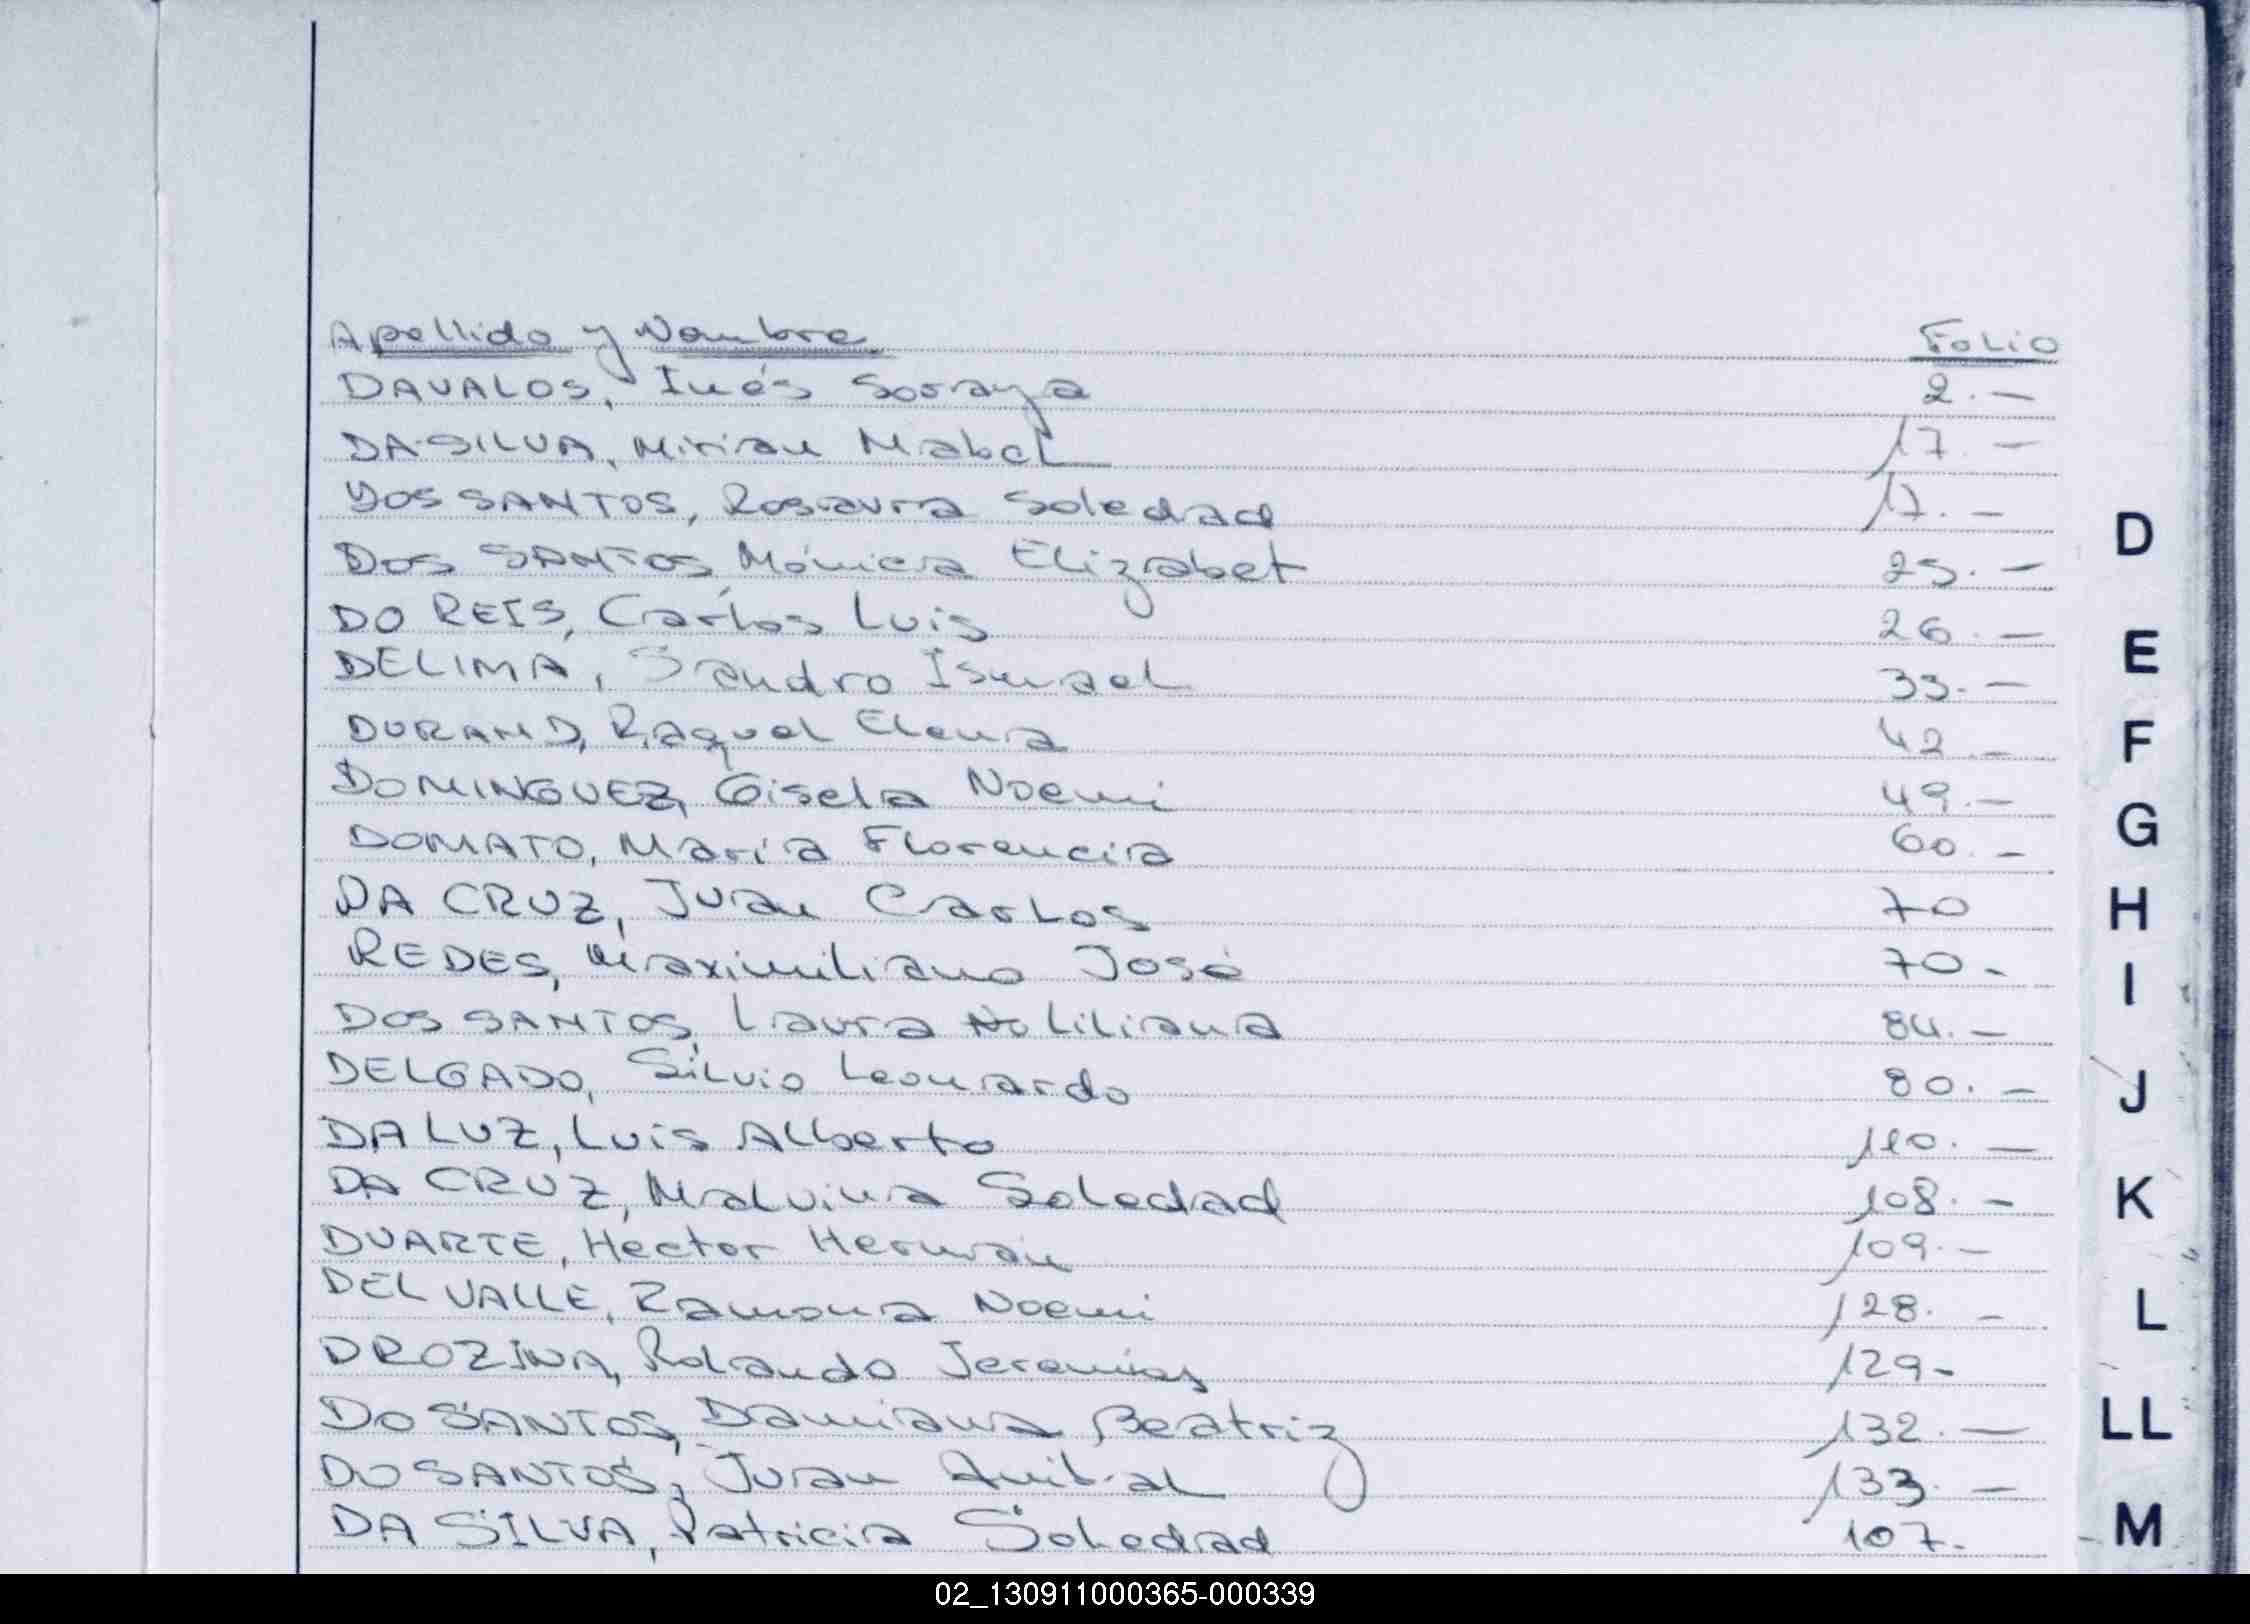 Apellido y Nombre Folio
DAVALOS, Inés Soraya 2.—
DA SILVA, Mirian Mabel 17.—
DOS SANTOS, Rosaura Soledad 17.—
DOS SANTOS, Mónica Elizabet 25.—
DO REIS, Carlos Luis 26.—
DELIMA, Sandro Ismael 33.—
DURAND, Raquel Elena 42.—
DOMINGUEZ, Gisela Noemi 49.—
DOMATO, María Florencia 60.—
DA CRUZ, Juan Carlos 70
REDES, Maximiliano José 70.-
DOS SANTOS, Laura Liliana 84.—
DELGADO, Silvio Leonardo 80.—
DA LUZ, Luis Alberto 110.—
DA CRUZ, Malvina Soledad 108.—
DUARTE, Hector Hernán 109.—
DEL VALLE, Ramona Noemi 128.—
DROZINA, Rolando Jeremias 129-
DO SANTOS, Damiana Beatriz 132.—
DO SANTOS, Juan Anibal 133.—
DA SILVA, Patricia Soledad 107.-
D
E
F
G
H
I
J
K
L
LL
M
02_130911000365-000339